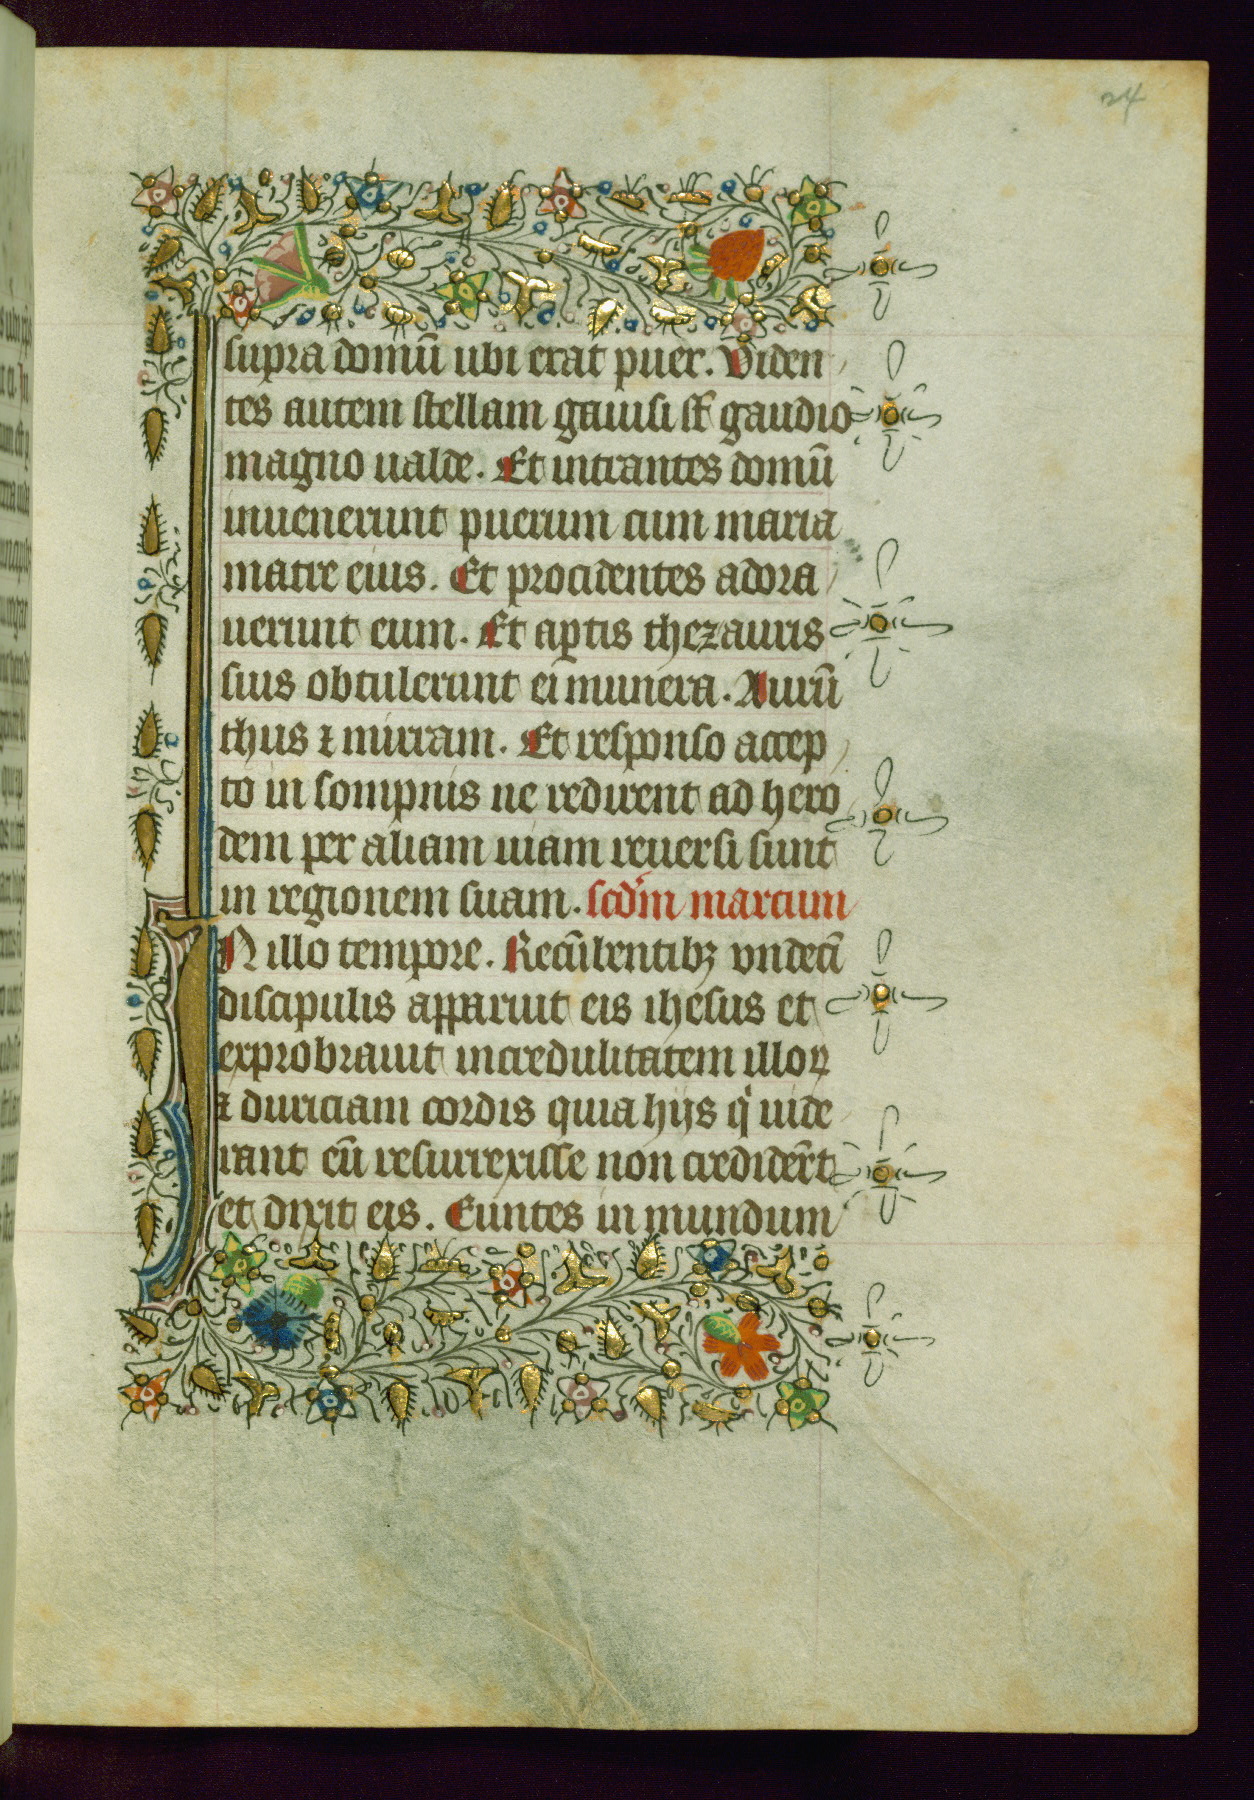 24
supra domū ubi erat puer. Viden
tes autem stellam gauisi st̄ gaudio
magno ualde. Et intrantes domū
inuenerunt puerum cum maria
matre eius. Et procidentes adora
uerunt eum. Et aꝑtis thezauris
suis obtulerunt ei munera. Aurū
thus ⁊ mirram. Et responso accep
to in sompnis ne redirent ad hero
dem per aliam uiam reuersi sunt
in regionem suam. scdm̄ marcum
IN illo tempore. Recūbentibꝫ vndecī
discipulis apparuit eis ihesus et
exprobrauit incredulitatem illoꝝ
⁊ duriciam cordis quia hijs qͥ uide
rant eū resurrexisse non credider̄t
et dixit eis. Euntes in mundum